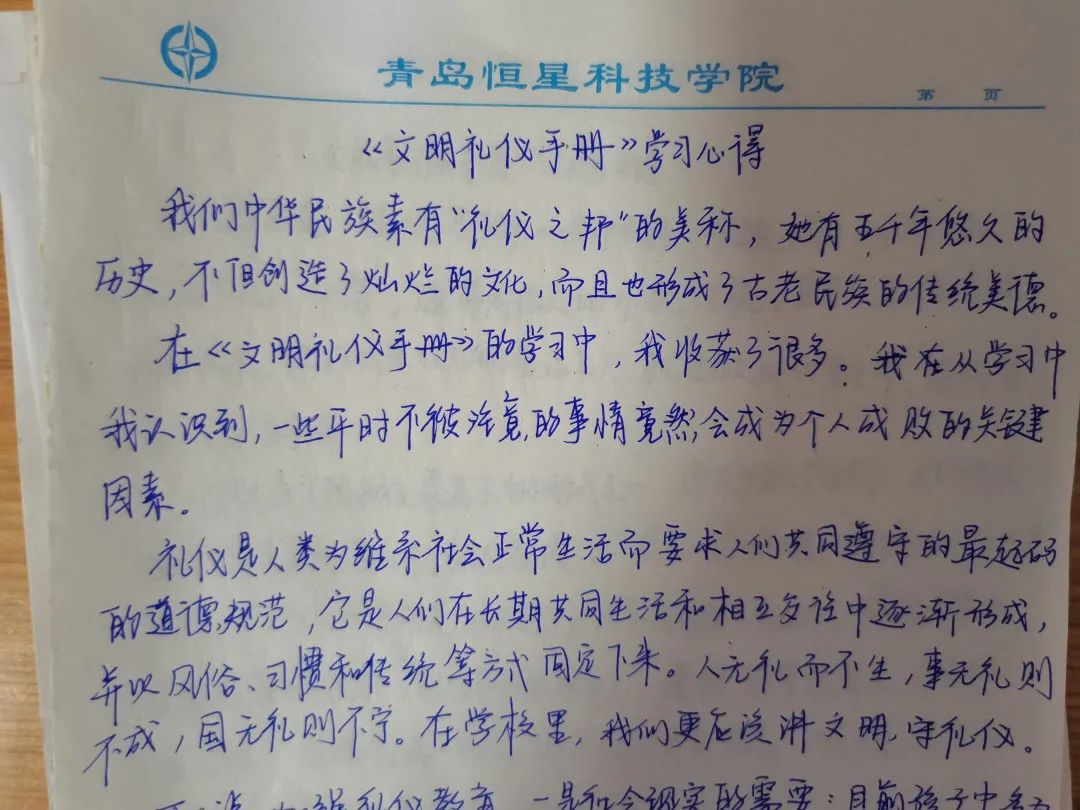 青岛恒星科技学院
第 页
《文明礼仪手册》学习心得
我们中华民族素有"礼仪之邦"的美称，她有五千年悠久的
历史，不但创造了灿烂的文化，而且也形成了古老民族的传统美德。
在《文明礼仪手册》的学习中，我收获了很多。我在从学习中
我认识到，一些平时不被注意的事情竟然会成为个人成败的关键
因素。
礼仪是人类为维系社会正常生活而要求人们共同遵守的最起码
的道德规范，它是人们在长期共同生活和相互交往中逐渐形成，
并以风俗、习惯和传统等方式固定下来。人无礼而不生，事无礼则
不成，国无礼则不宁。在学校里，我们更应该讲文明，守礼仪。
加强礼仪教育，一是社会现实的需要：目前孩子中